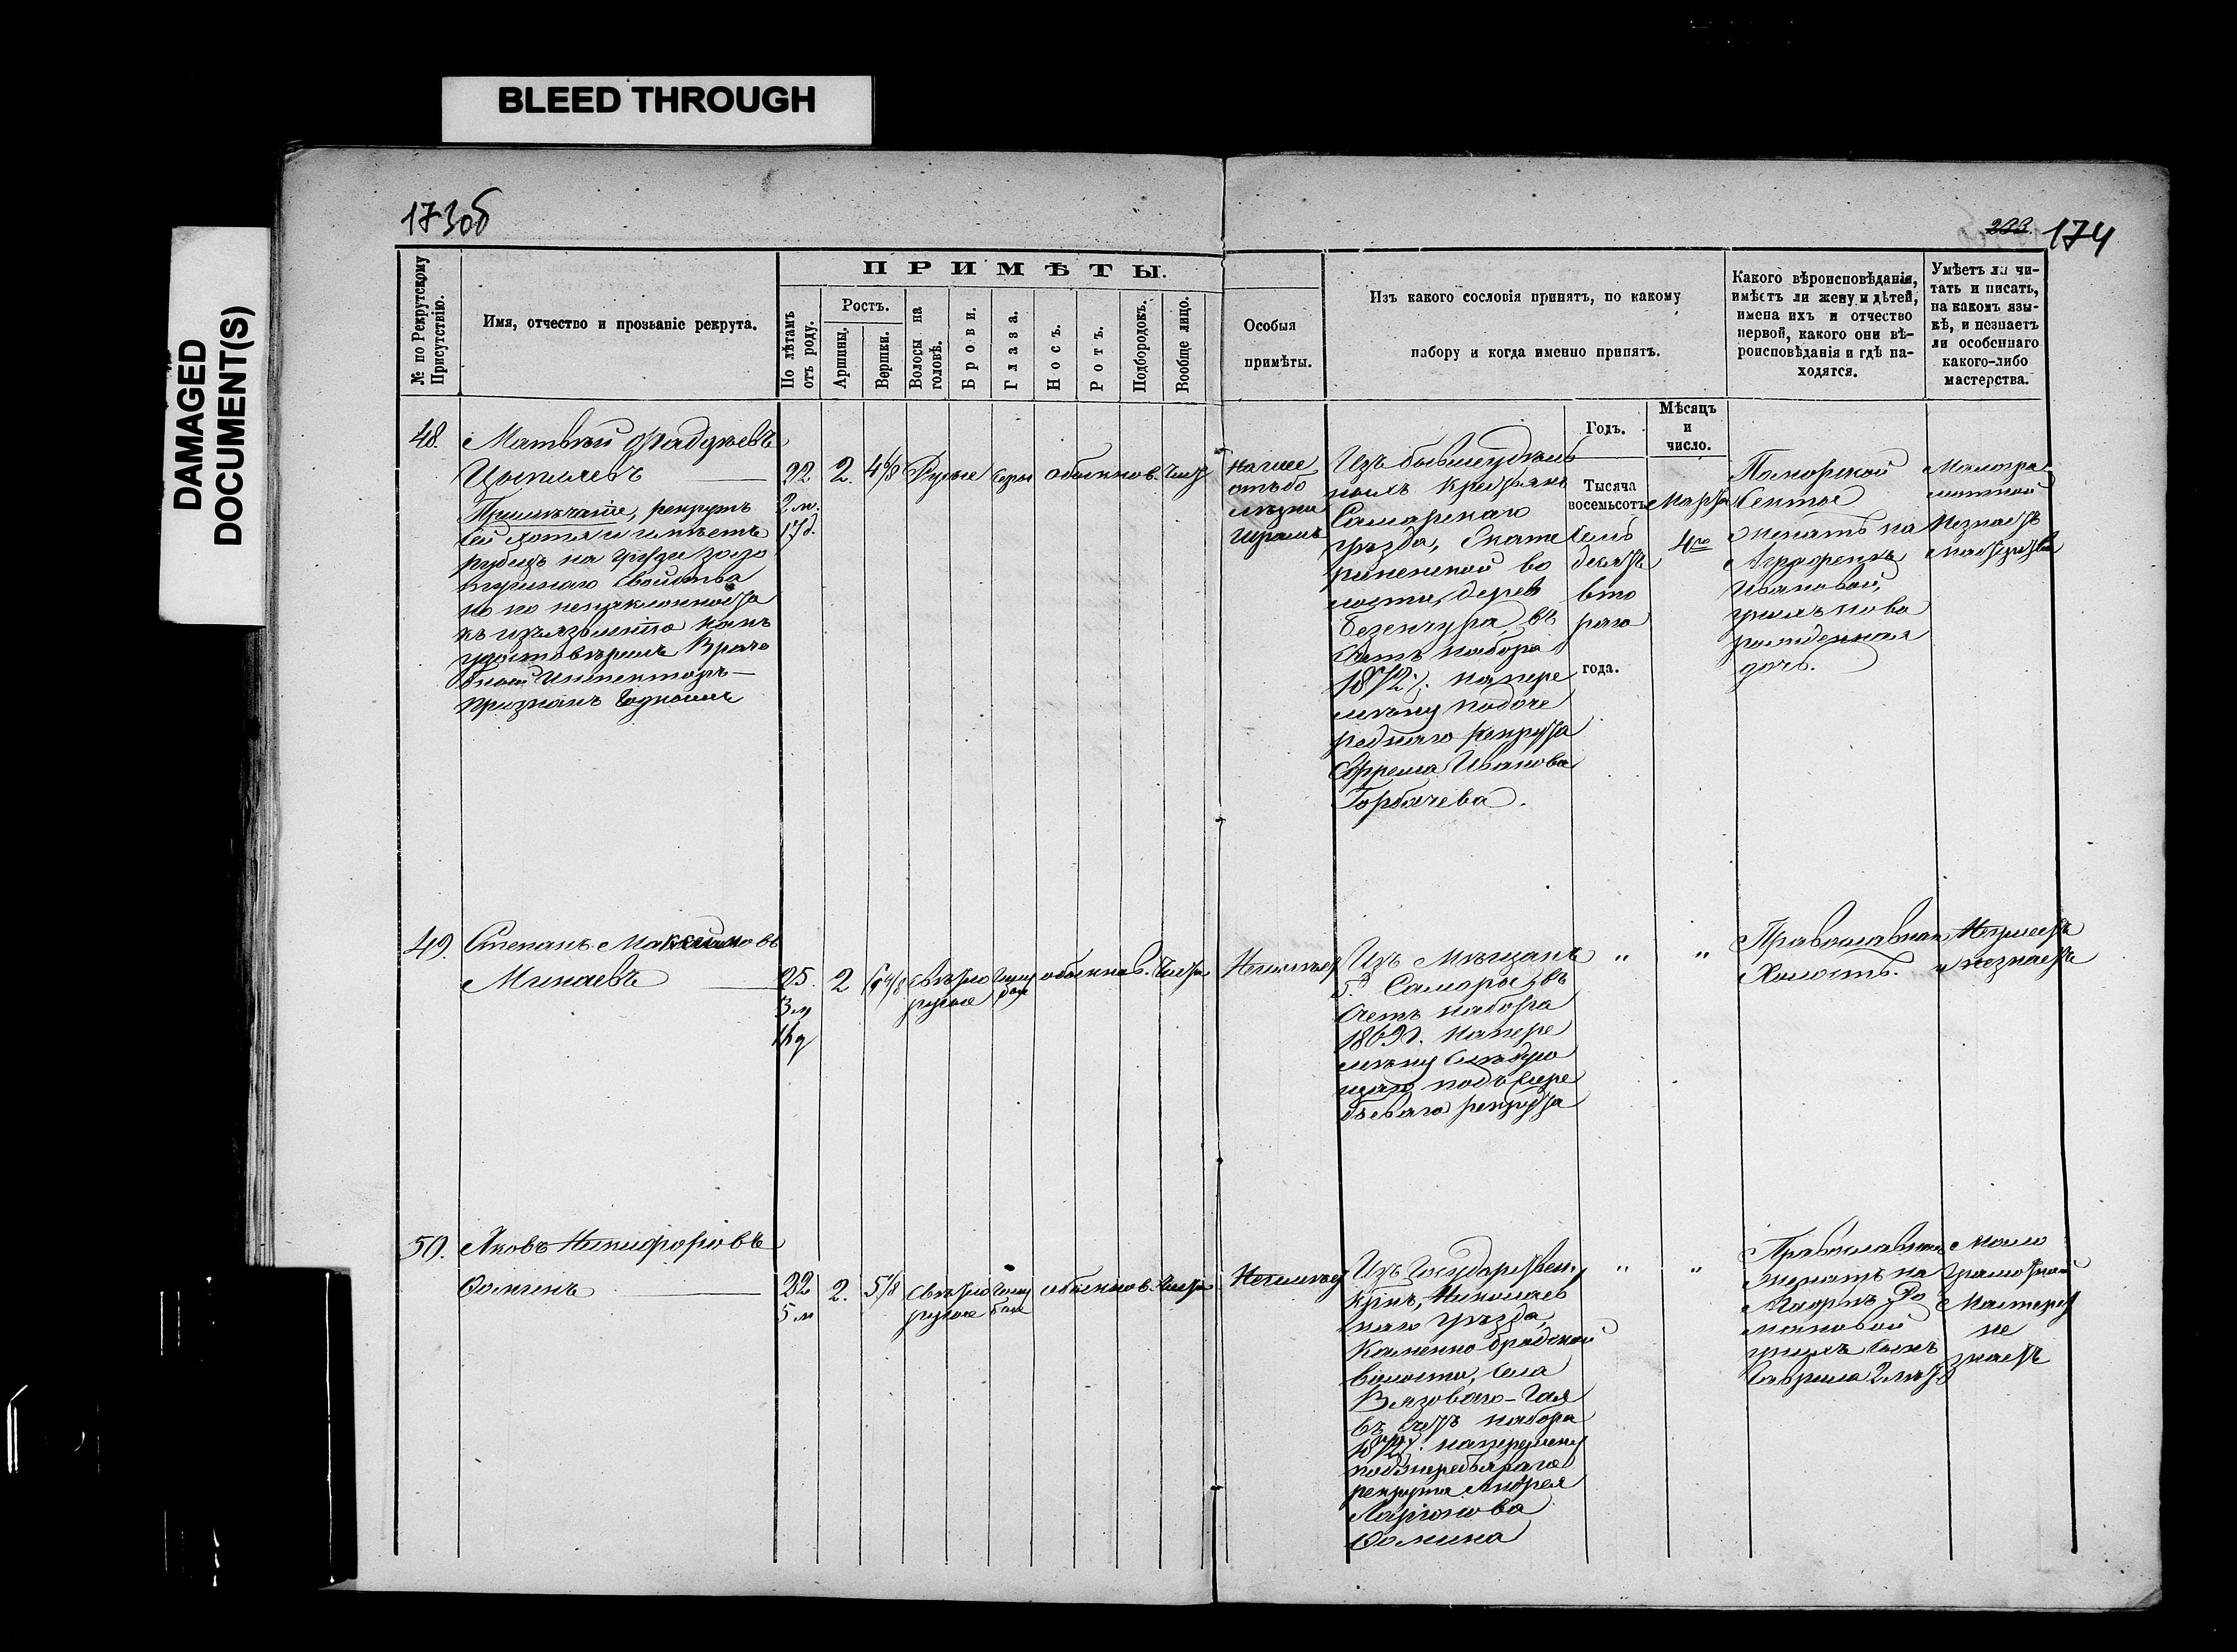 BLEED THROUGH
DAMAGED
DOCUMENT(S)
173об
203. 174
№ по Рекрутскому
Присутствію.
Имя, отчество и прозваніе рекрута.
ПРИМѢТЫ.
По лѣтамъ
отъ роду.
Ростъ.
Аршины.
Вершки.
Волосы на
головѣ.
Брови.
Глаза.
Носъ.
Ротъ.
Подбородокъ.
Вообще лицо.
Особыя
примѣты.
Изъ какого сословія принятъ, по какому
набору и когда именно принятъ.
Годъ.
Мѣсяцъ
и
число.
Какого вѣроисповѣданія,
имѣетъ ли жену и дѣтей,
имена ихъ и отчество
первой, какого они вѣ-
роисповѣданія и гдѣ на-
ходятся.
Умѣетъ ли чи-
тать и писать,
на какомъ язы-
кѣ, и незнаетъ
ли особеннаго
какого-либо
мастерства.
48.
Матвѣй Фадѣевъ
Цыпляевъ
Примѣчаніе, рекрутъ
сей хотя и имѣетъ
рубецъ на груди золо
тушнаго свойства
но по ненаклонности
къ изъязвленію какъ
удостовѣрилъ Враче
бный Инспекторъ—
признанъ годнымъ
22
2 м.
17 д.
2.
4 6/8
Русые
Серы
обыкнов.
Чист
на шее
отъ бо
лѣзни
шрамъ
Изъ бывш удѣль
ныхъ крестьянъ
Самарскаго
уѣзда, Екате
риненской во
лости, дерев
Безенчука, въ
счетъ набора
1872 г. на пере
мѣну подоче
реднаго рекрута
Ефрема Иванова
Горбачева.
Тысяча
восемьсотъ
семь
десятъ
вто
раго
года.
Марта
4го
Поморской
секты
женатъ на
Аграфенѣ
Ивановой,
у нихъ ново
рожденная
дочь.
Малогра
мотной
Незнаетъ
мастерства
49.
Степанъ Максимовъ
Минаевъ
25.
3 м
16 д
2
свѣтло
русые
Голу
бые
обыкнов.
Чистое
Неимѣет
Изъ мѣщанъ
г. Самары, въ
счетъ набора
1869 г. на пере
мѣну слѣдую
щаго подъжере
бьеваго рекрута
"
"
Православнаго
Холостъ.
Неумеетъ
и незнаетъ
50.
Яковъ Никифоровъ
Фоминъ
22
5 м
2.
свѣтло
русые
Голу
бые
обыкнов.
Чистое
Неимѣет
Изъ Государствен.
крнъ, Николаев
скаго уѣзда,
Каменно бродской
волости, села
Вязоваго-Гая
въ счетъ набора
1872 г. наперемену
подъжеребьяваго
рекрута Андрея
Ларионова
Фомина
"
"
Православнаго
женатъ на
Марфѣ Ро
мановой
у нихъ сынъ
Гаврила 2 летъ
Мало
грамотной
Мастерст
не
знаетъ